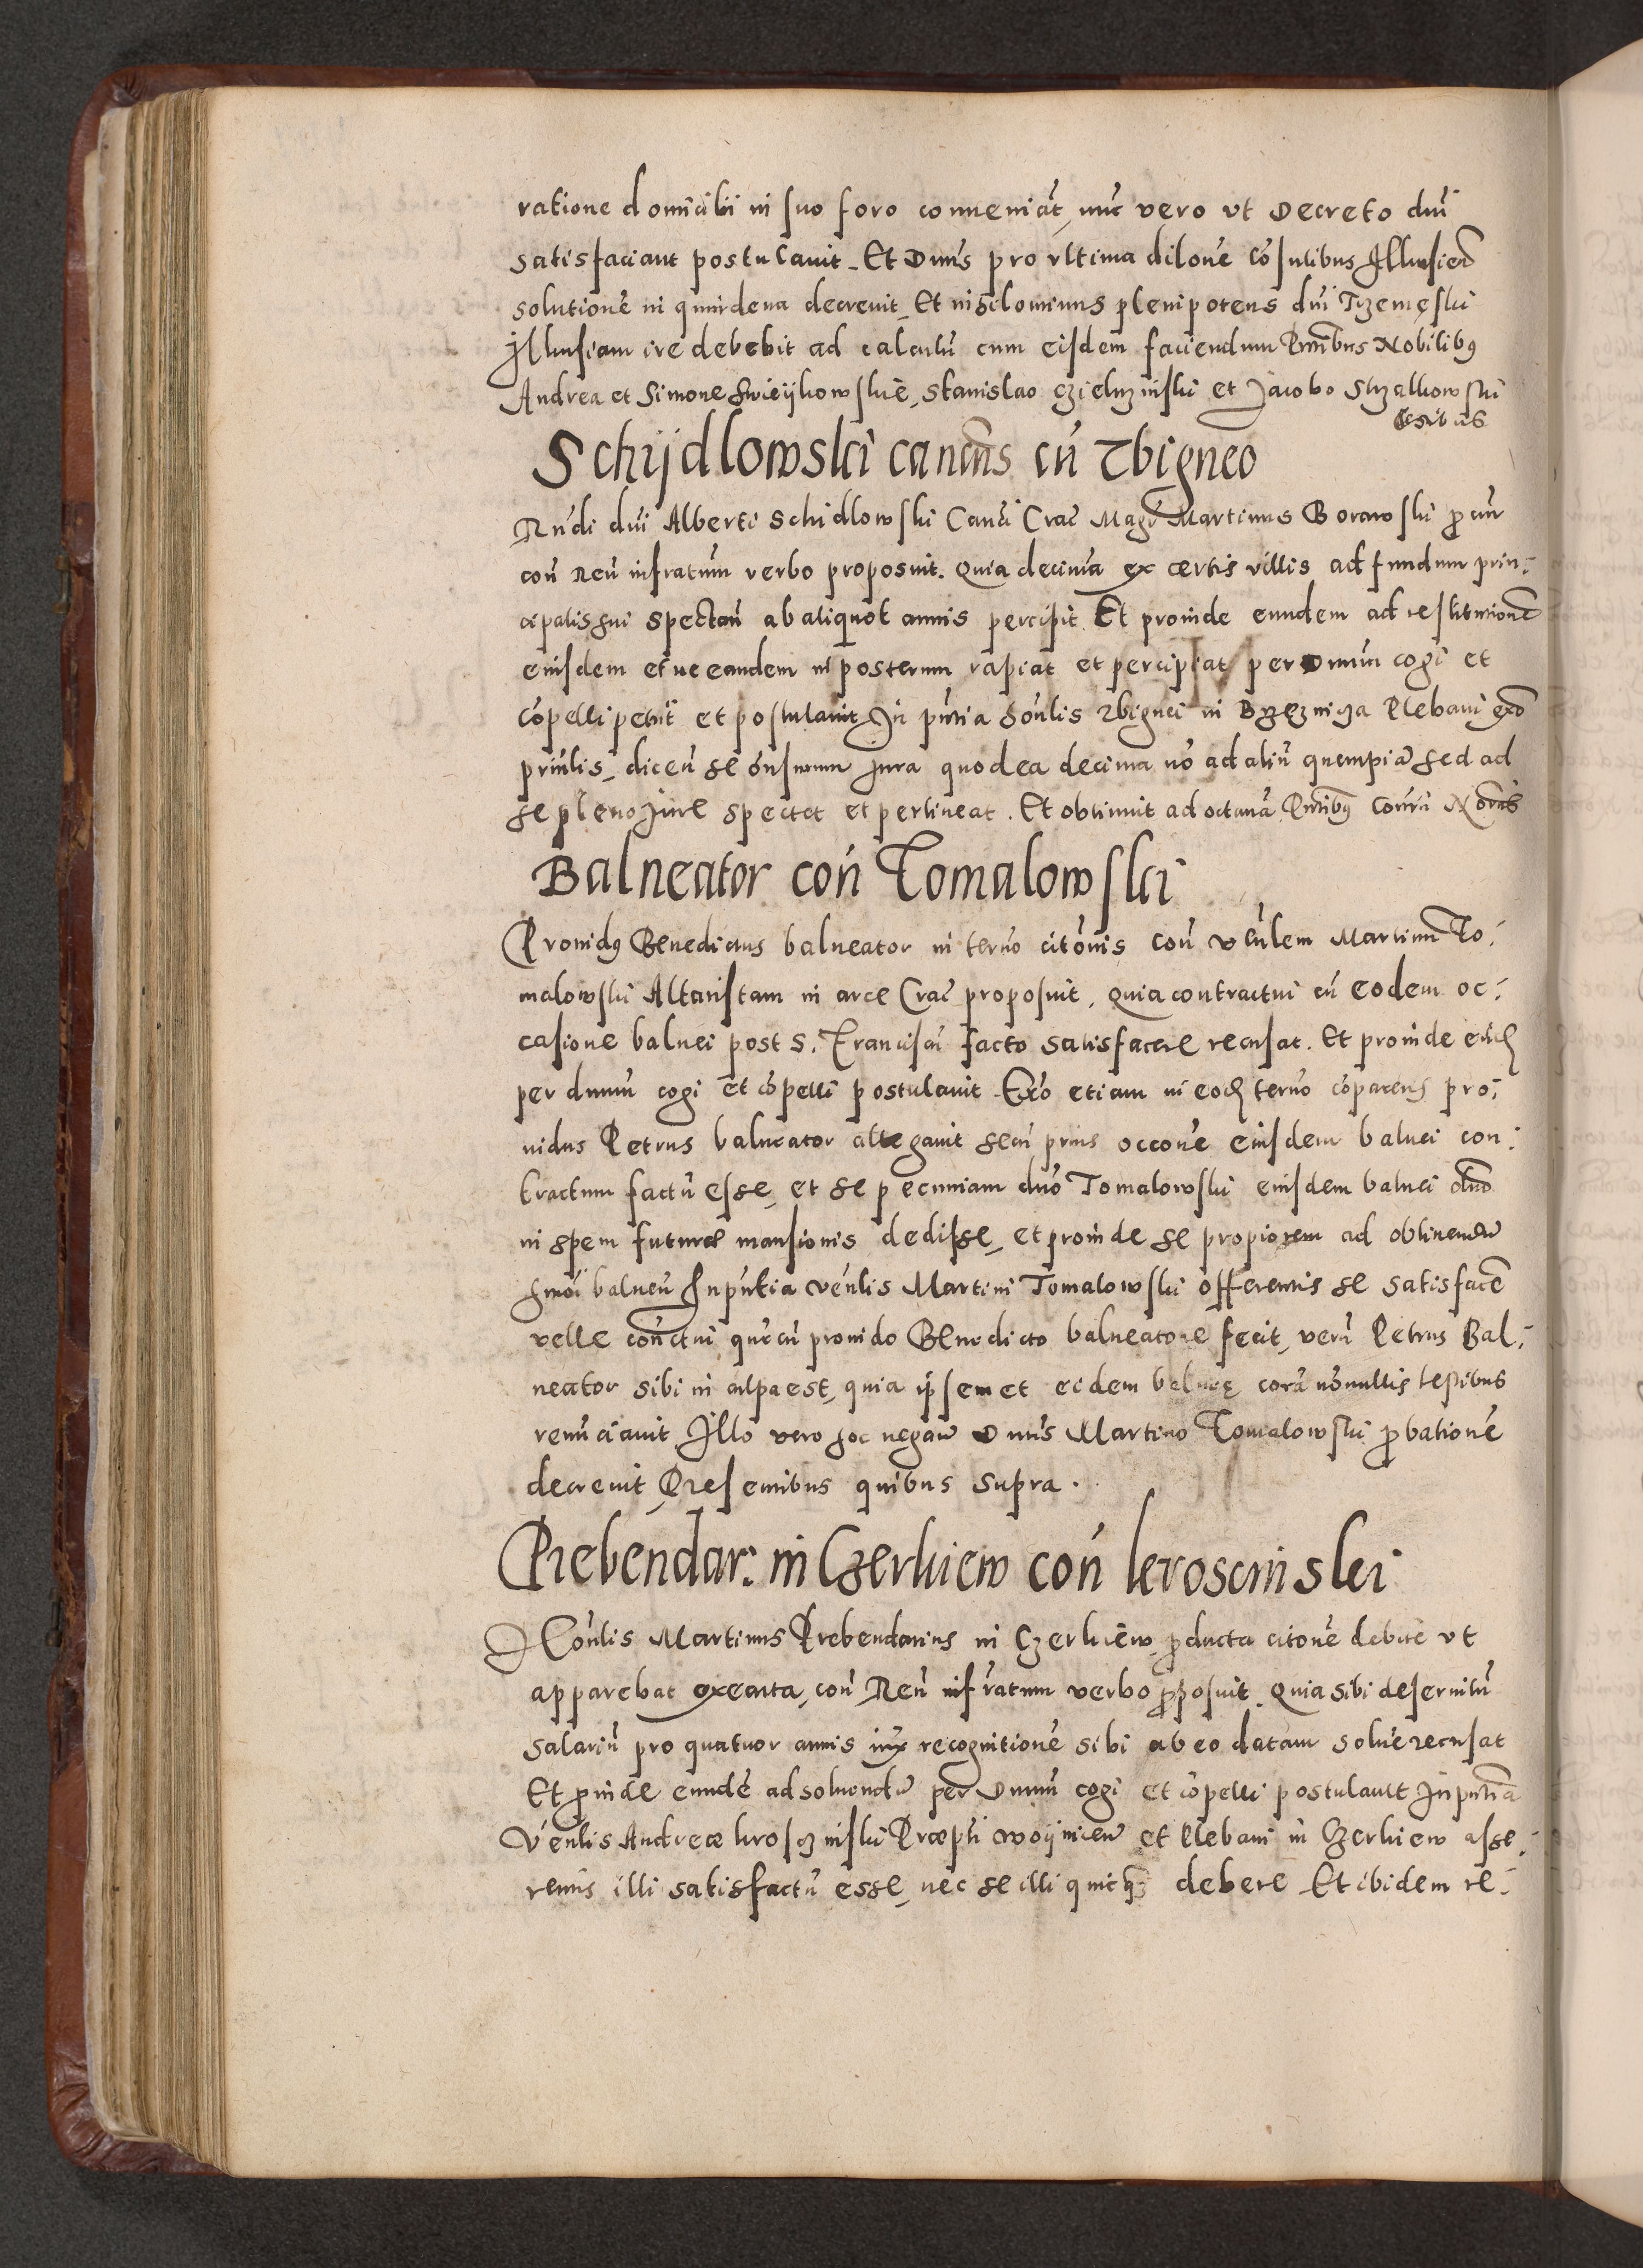 ratione domicilii in suo foro conueniāt, nūc vero vt Decreto dn̄i
satisfaciant postulauit. Et Dnūs pro vltima dilonē cōsulibus Illkusien̄
solutionē in quindena decreuit, Et nihilominus plenipotens dn̄i Trzemęski
Ilkusiam ire debebit ad calculū cum eisdem faciendum Pn̄tibus Nobilibꝰ
Andrea et Simone Swieijkowskie, Stanislao et Jacobo Strzalkowski
testibus
Schijdlowski cancūs cū Zbigneo
Rn̄di dn̄i Alberti Schidlowski Can̄ci Crac̄ Magr̄ Martinus Borowski ꝓcūr
con̄ Reū infratūm verbo proposuit. Quia decimā ex certis villis ad fundum prin:
cipalis sui spectan̄ ab aliquot annis percipit. Et proinde eundem ad restitutionē
eiusdem et ne eandem in posterum rapiat et percipiat per Dnūm cogi et
cōpelli petiit et postulauit In pn̄tia hon̄lis Zbignei in Brzeznicza Plebani exō
prin̄lis, dicen̄ se ōnsurum jura quod ea decima nō ad aliū quempiā sed ad
se pleno jure spectet et pertineat. Et obtinuit ad octauā Pn̄tibꝰ Coūrū Nōrūs
Balneator con̄ Tomalowski
Prouidꝰ Benedictus balneator in term̄o citōnis con̄ vēn̄lem Martinū To:
malowski Altaristam in arce Crac̄ proposuit, quia contractui cū eodem oc:
casione balnei post S. Francisci facto satisfacere recusat. Et proinde eūd
per dnūm cogi et cōpelli postulauit Exō etiam in eod term̄o cōparens pro:
uidus Petrus balneator allegauit secū prius occonē eiusdem balnei con:
tractum factū esse, et se pecuniam dn̄o Tomalowski eiusdem balnei dn̄o
in spem futurae mansionis dedisse, et proinde se propiorem ad obtinendū
hm̄oi balneū In pn̄tia vēn̄lis Martini Tomalowski offerentis se satisfacē
velle con̄ctui quē cū prouido Benedicto balneatore fecit, verū Petrus Bal:
neator sibi in culpa est, quia ipsemet eidem balneę corā nōnullis testibus
renūciauit Illo vero hoc negan̄ Dnūs Martino Tomalowski ꝓbationē
decreuit, Presentibus quibus supra.
Prebendar: in Czerkiew con̄ kroscinski
Hon̄lis Martinus Prebendarius in Czerkiew, ꝓducta citonē debite vt
apparebat executa, con̄ Reū infr̄atum verbo ꝓposuit. Quia sibi deseruitū
salariū pro quatuor annis iux recognitionē sibi ab eo datam soluē recusat
Et ꝓinde eundē ad soluendū per Dnūm cogi et cōpelli postulauit In pn̄tia
Vēn̄lis Andreae krosczinski Praepti woijnicen̄ et Plebani in Czerkiew asse:
rentis illi satisfactū esse, nec se illi quicq̄ debere Et ibidem re: